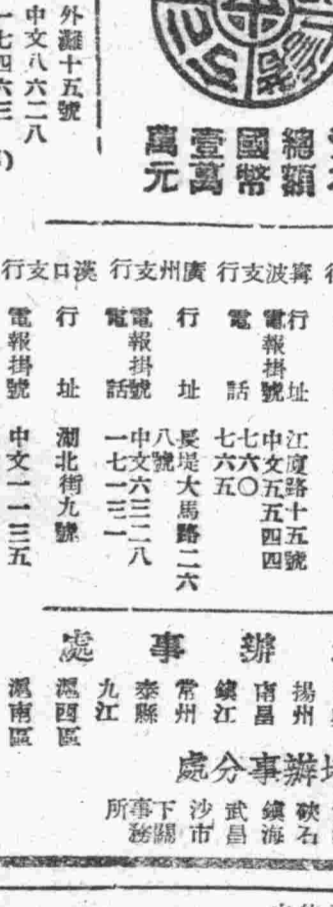 總額
國幣
壹萬
萬元
外灘十五號
中文八六二八
一七四六三
甯波支行
行址 江廈路十五號
電報掛號 中文五五四四
電話 七六〇
七六五
廣州支行
行址 長堤大馬路二六
八號
電報掛號 中文六三二八
電話 一七一三一
漢口支行
行址 湖北街九號
電報掛號 中文一一三五
辦事處
揚州
南昌
鎮江
常州
泰縣
九江
滬西區
滬南區
辦事分處
硤石
鎮海
武昌
沙市
下關
事務
所